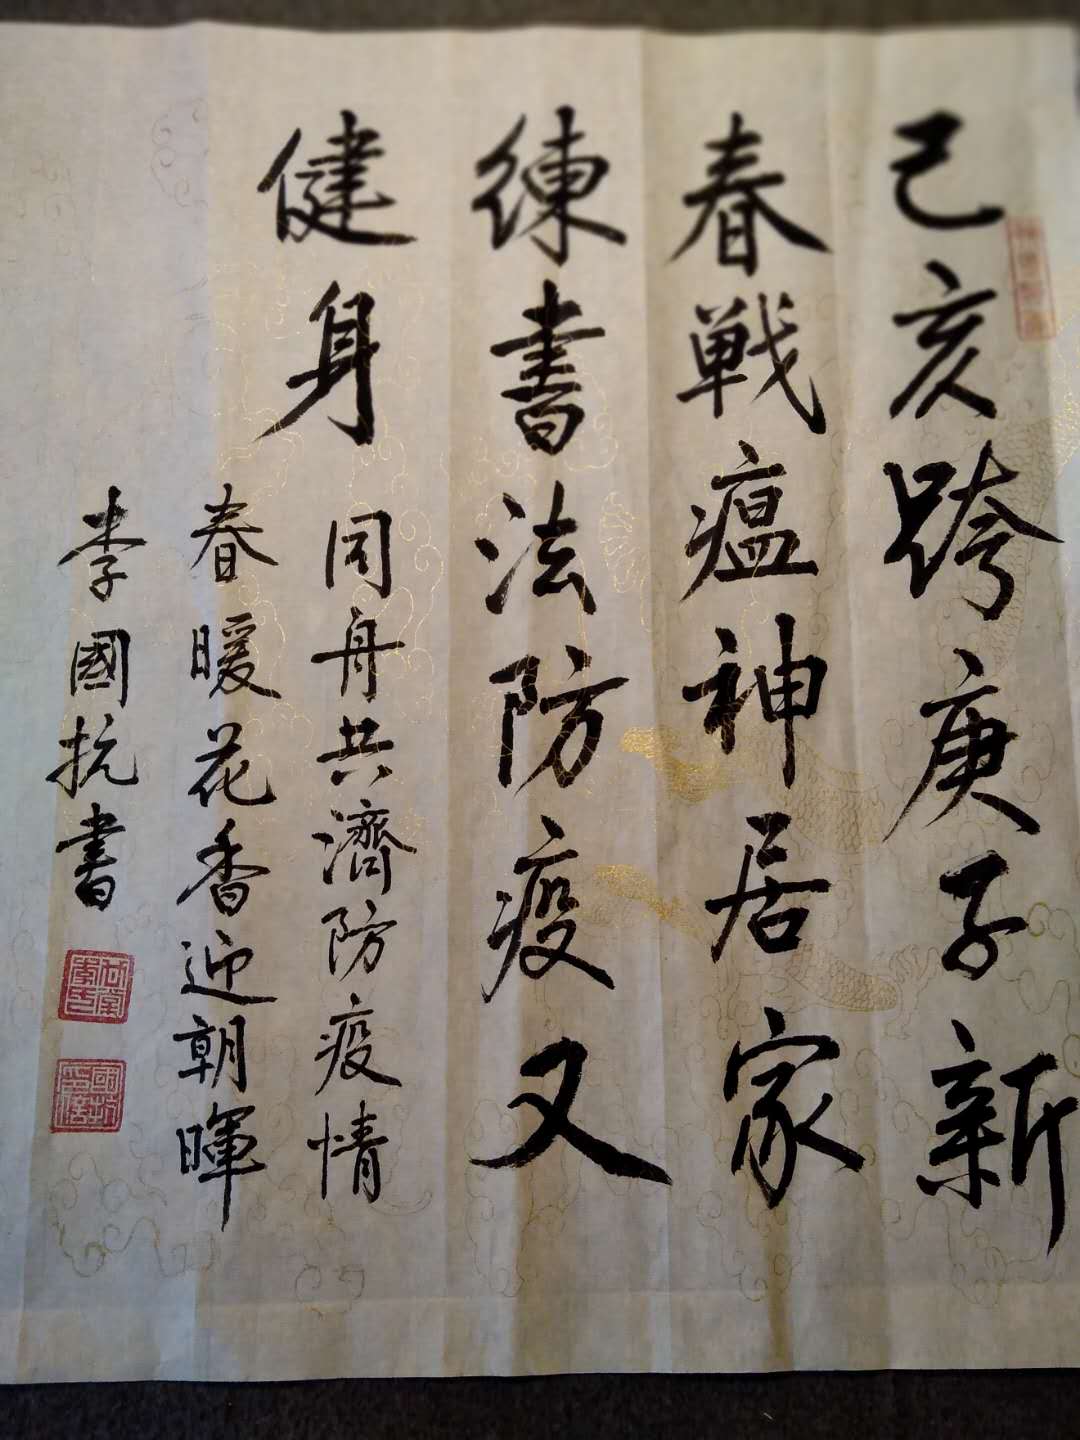 己亥跨庚子新
春戦瘟神居家
練書法防疫又
健身
同舟共濟防疫情
春暖花香迎朝暉
李國抗書